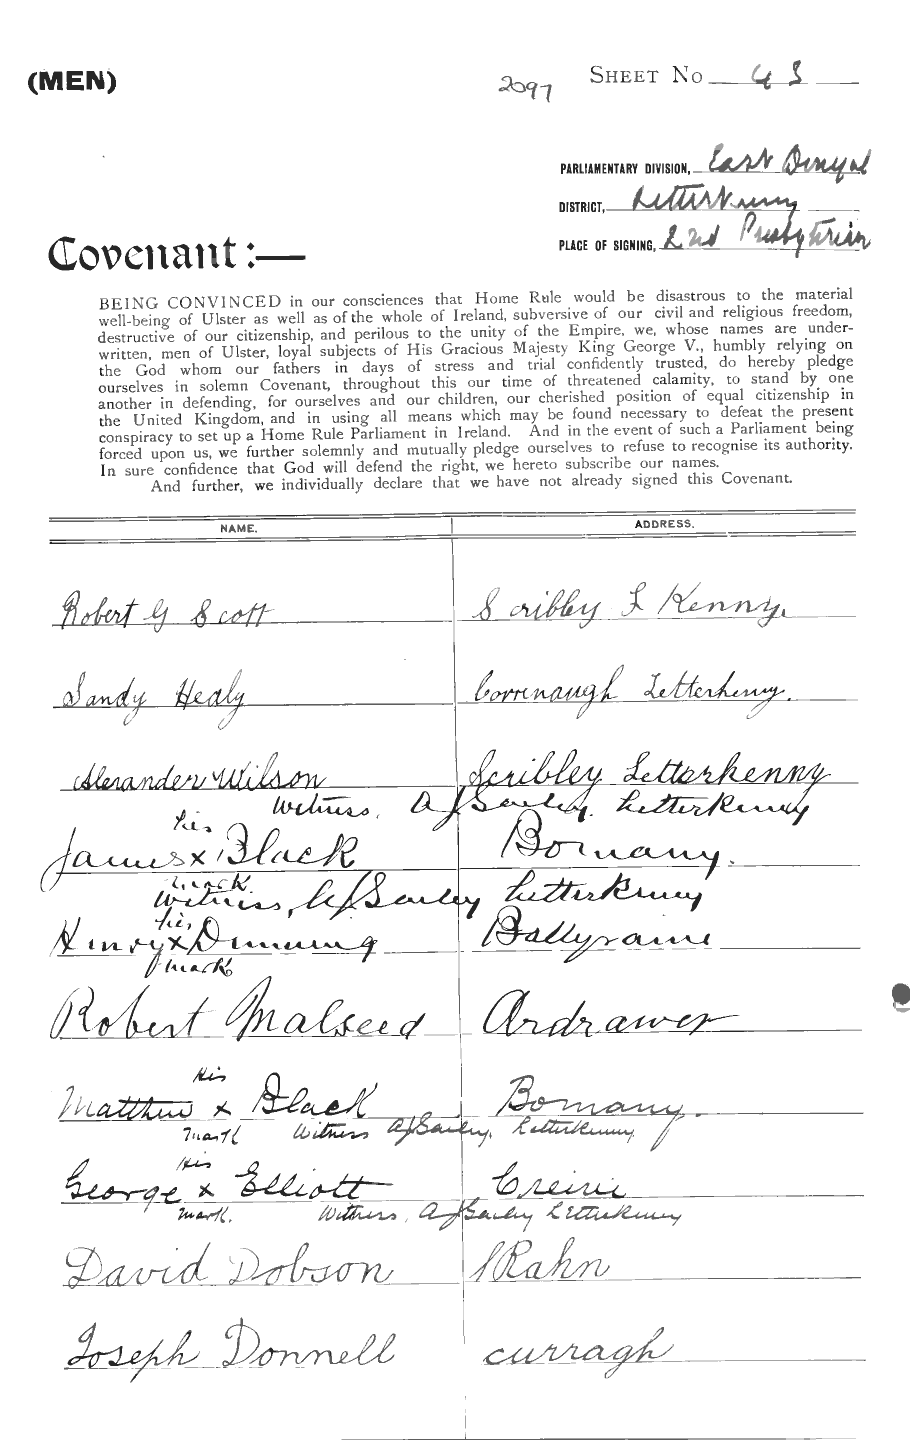 (MEN)
2097
SHEET No 43
PARLIAMENTARY DIVISION, East Donegal
DISTRICT, Letterkenny
PLACE OF SIGNING, 2nd Presbyterian
Covenant :—
BEING CONVINCED in our consciences that Home Rule would be disastrous to the material
well-being of Ulster as well as of the whole of Ireland, subversive of our civil and religious freedom,
destructive of our citizenship, and perilous to the unity of the Empire, we, whose names are under-
written, men of Ulster, loyal subjects of His Gracious Majesty King George V., humbly relying on
the God whom our fathers in days of stress and trial confidently trusted, do hereby pledge
ourselves in solemn Covenant, throughout this our time of threatened calamity, to stand by one
another in defending, for ourselves and our children, our cherished position of equal citizenship in
the United Kingdom, and in using all means which may be found necessary to defeat the present
conspiracy to set up a Home Rule Parliament in Ireland. And in the event of such a Parliament being
forced upon us, we further solemnly and mutually pledge ourselves to refuse to recognise its authority.
In sure confidence that God will defend the right, we hereto subscribe our names.
And further, we individually declare that we have not already signed this Covenant.
NAME. ADDRESS.
Robert G Scott Scribley L Kenny.
Sandy Healy Correnaugh Letterkenny.
Alexander Wilson Scribley Letterkenny
Witness, A J Letterkenny
his
James x Black Bomany.
mark.
Witness, A J Letterkenny
his
Henry x Ballyraine
mark
Robert Malseed Ardrawer
His
Matthew x Black Bomany.
mark Witness A J Letterkenny
His
George x Elliott Creeve
mark. Witness, A J Letterkenny
David Dobson Rahn
Joseph Donnell curragh